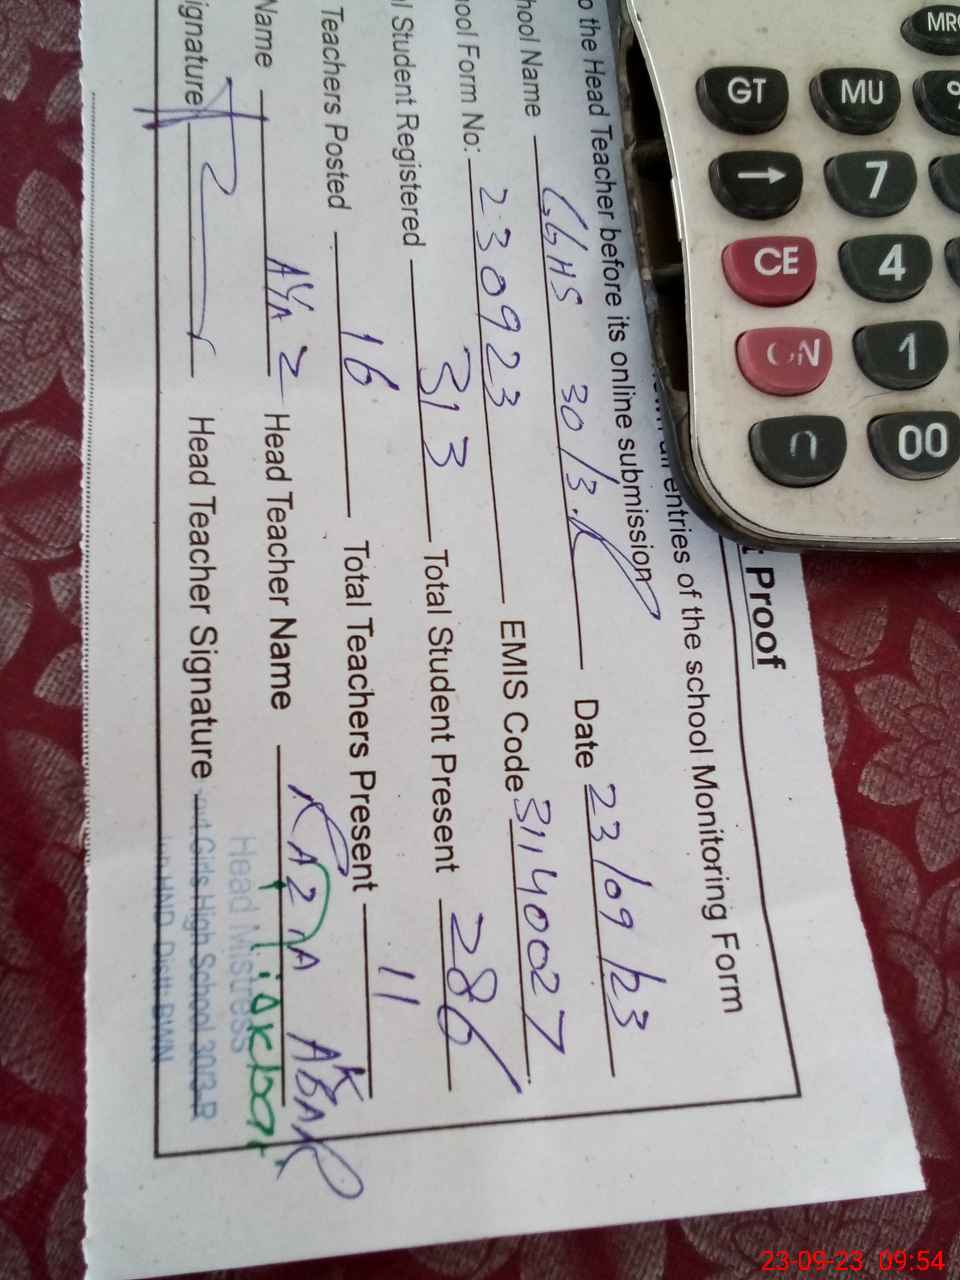 t Proof
own all entries of the school Monitoring Form
o the Head Teacher before its online submission
hool Name GGHS 30/3.R Date 23/09/23
hool Form No: 230923 EMIS Code 31140027
l Student Registered 313 Total Student Present 286
Teachers Posted 16 Total Teachers Present 11
Name Head Teacher Name AKBAR
ignature Head Teacher Signature Akbar
Head Mistress
Govt Girls High School 30/3-R
HND Distt: BWN
MR
GT MU %
→ 7
CE 4
ON 1
00
23-09-23 09:54